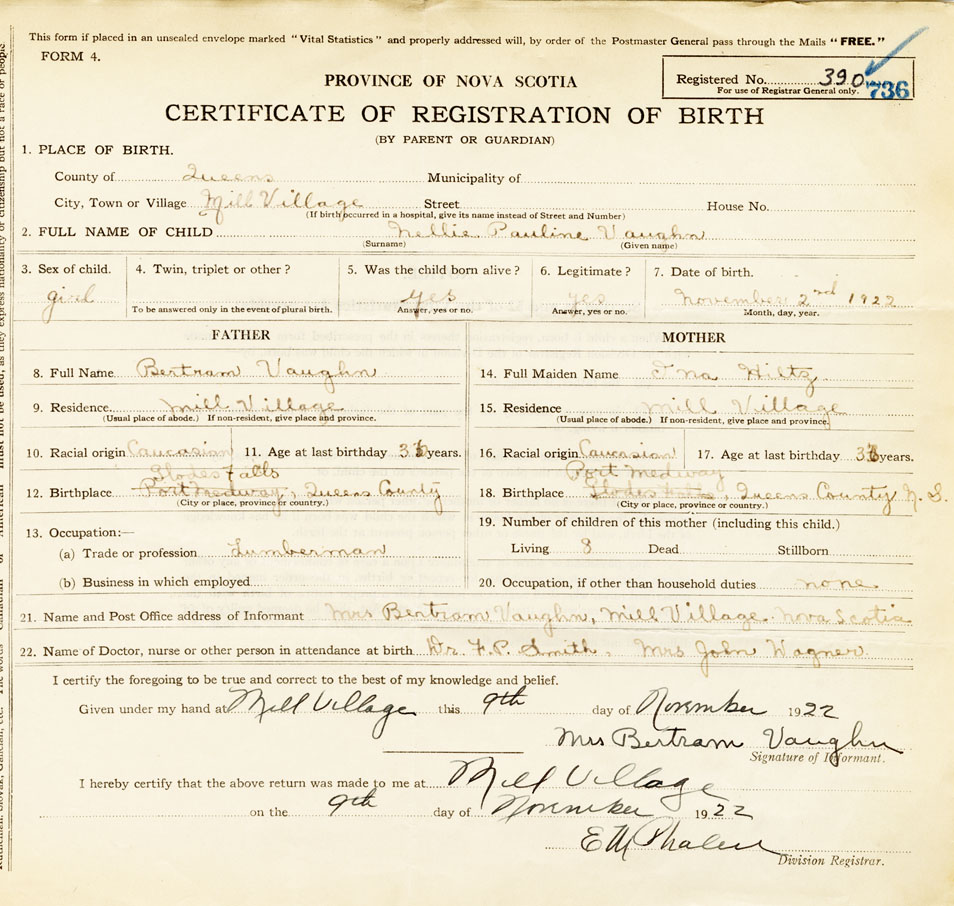 This form if placed in an unsealed envelope marked "Vital Statistics" and properly addressed will, by order of the Postmaster General pass through the Mails "FREE."
FORM 4.
Registered No. 390
For use of Registrar General only. 736
PROVINCE OF NOVA SCOTIA
CERTIFICATE OF REGISTRATION OF BIRTH
(BY PARENT OR GUARDIAN)
1. PLACE OF BIRTH.
County of Queens Municipality of
City, Town or Village Mill Village Street House No.
(If birth occurred in a hospital, give its name instead of Street and Number)
2. FULL NAME OF CHILD Nellie Pauline Vaughn
(Surname) (Given name)
3. Sex of child. 4. Twin, triplet or other? 5. Was the child born alive? 6. Legitimate? 7. Date of birth.
girl yes yes November 2nd 1922
To be answered only in the event of plural birth. Answer, yes or no. Answer, yes or no. Month, day, year.
FATHER MOTHER
8. Full Name Bertram Vaughn 14. Full Maiden Name Ina Hiltz
9. Residence Mill Village 15. Residence Mill Village
(Usual place of abode.) If non-resident, give place and province. (Usual place of abode.) If non-resident, give place and province.
10. Racial origin Caucasian 11. Age at last birthday years. 16. Racial origin Caucasian 17. Age at last birthday years.
Glodes Falls Port Medway
12. Birthplace Port Medway, Queens County 18. Birthplace Glodes Falls, Queens County N. S.
(City or place, province or country.) (City or place, province or country.)
13. Occupation:— 19. Number of children of this mother (including this child.)
(a) Trade or profession Lumberman Living 8 Dead Stillborn
(b) Business in which employed 20. Occupation, if other than household duties none
21. Name and Post Office address of Informant Mrs Bertram Vaughn, Mill Village Nova Scotia
22. Name of Doctor, nurse or other person in attendance at birth Dr. F. P. Smith, Mrs John Wagner
I certify the foregoing to be true and correct to the best of my knowledge and belief.
Given under my hand at Mill Village this 9th day of November 1922
Mrs Bertram Vaughn
Signature of Informant.
I hereby certify that the above return was made to me at Mill Village
on the 9th day of November 1922
E M Phalen
Division Registrar.